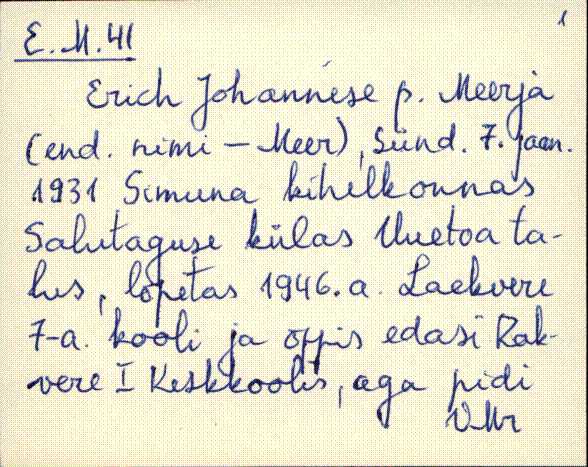 1
E.M. 41
Erich Johannese p. Meerja
(end. nimi – Meer), sünd. 7. jaan.
1931 Simuna kihelkonnas
Salutaguse külas Uuetoa ta-
lus, lõpetas 1946. a. Laekvere
7-a. kooli ja õppis edasi Rak-
vere I Keskkoolis, aga pidi